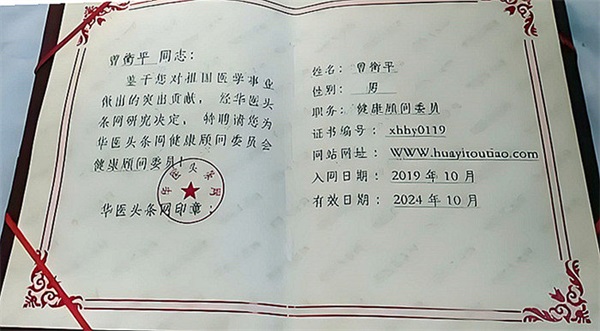 曾衡平 同志:
鉴于您对祖国医学事业
做出的突出贡献,经华医头
条网研究决定,特聘请您为
华医头条网健康顾问委员会
健康顾问委员!
华医头条网
华医头条网印章:
姓名:曾衡平
性别:男
职务:健康顾问委员
证书编号:xhhy0119
网站网址:WWW.huayitoutiao.com
入网日期:2019 年 10 月
有效日期:2024 年 10 月